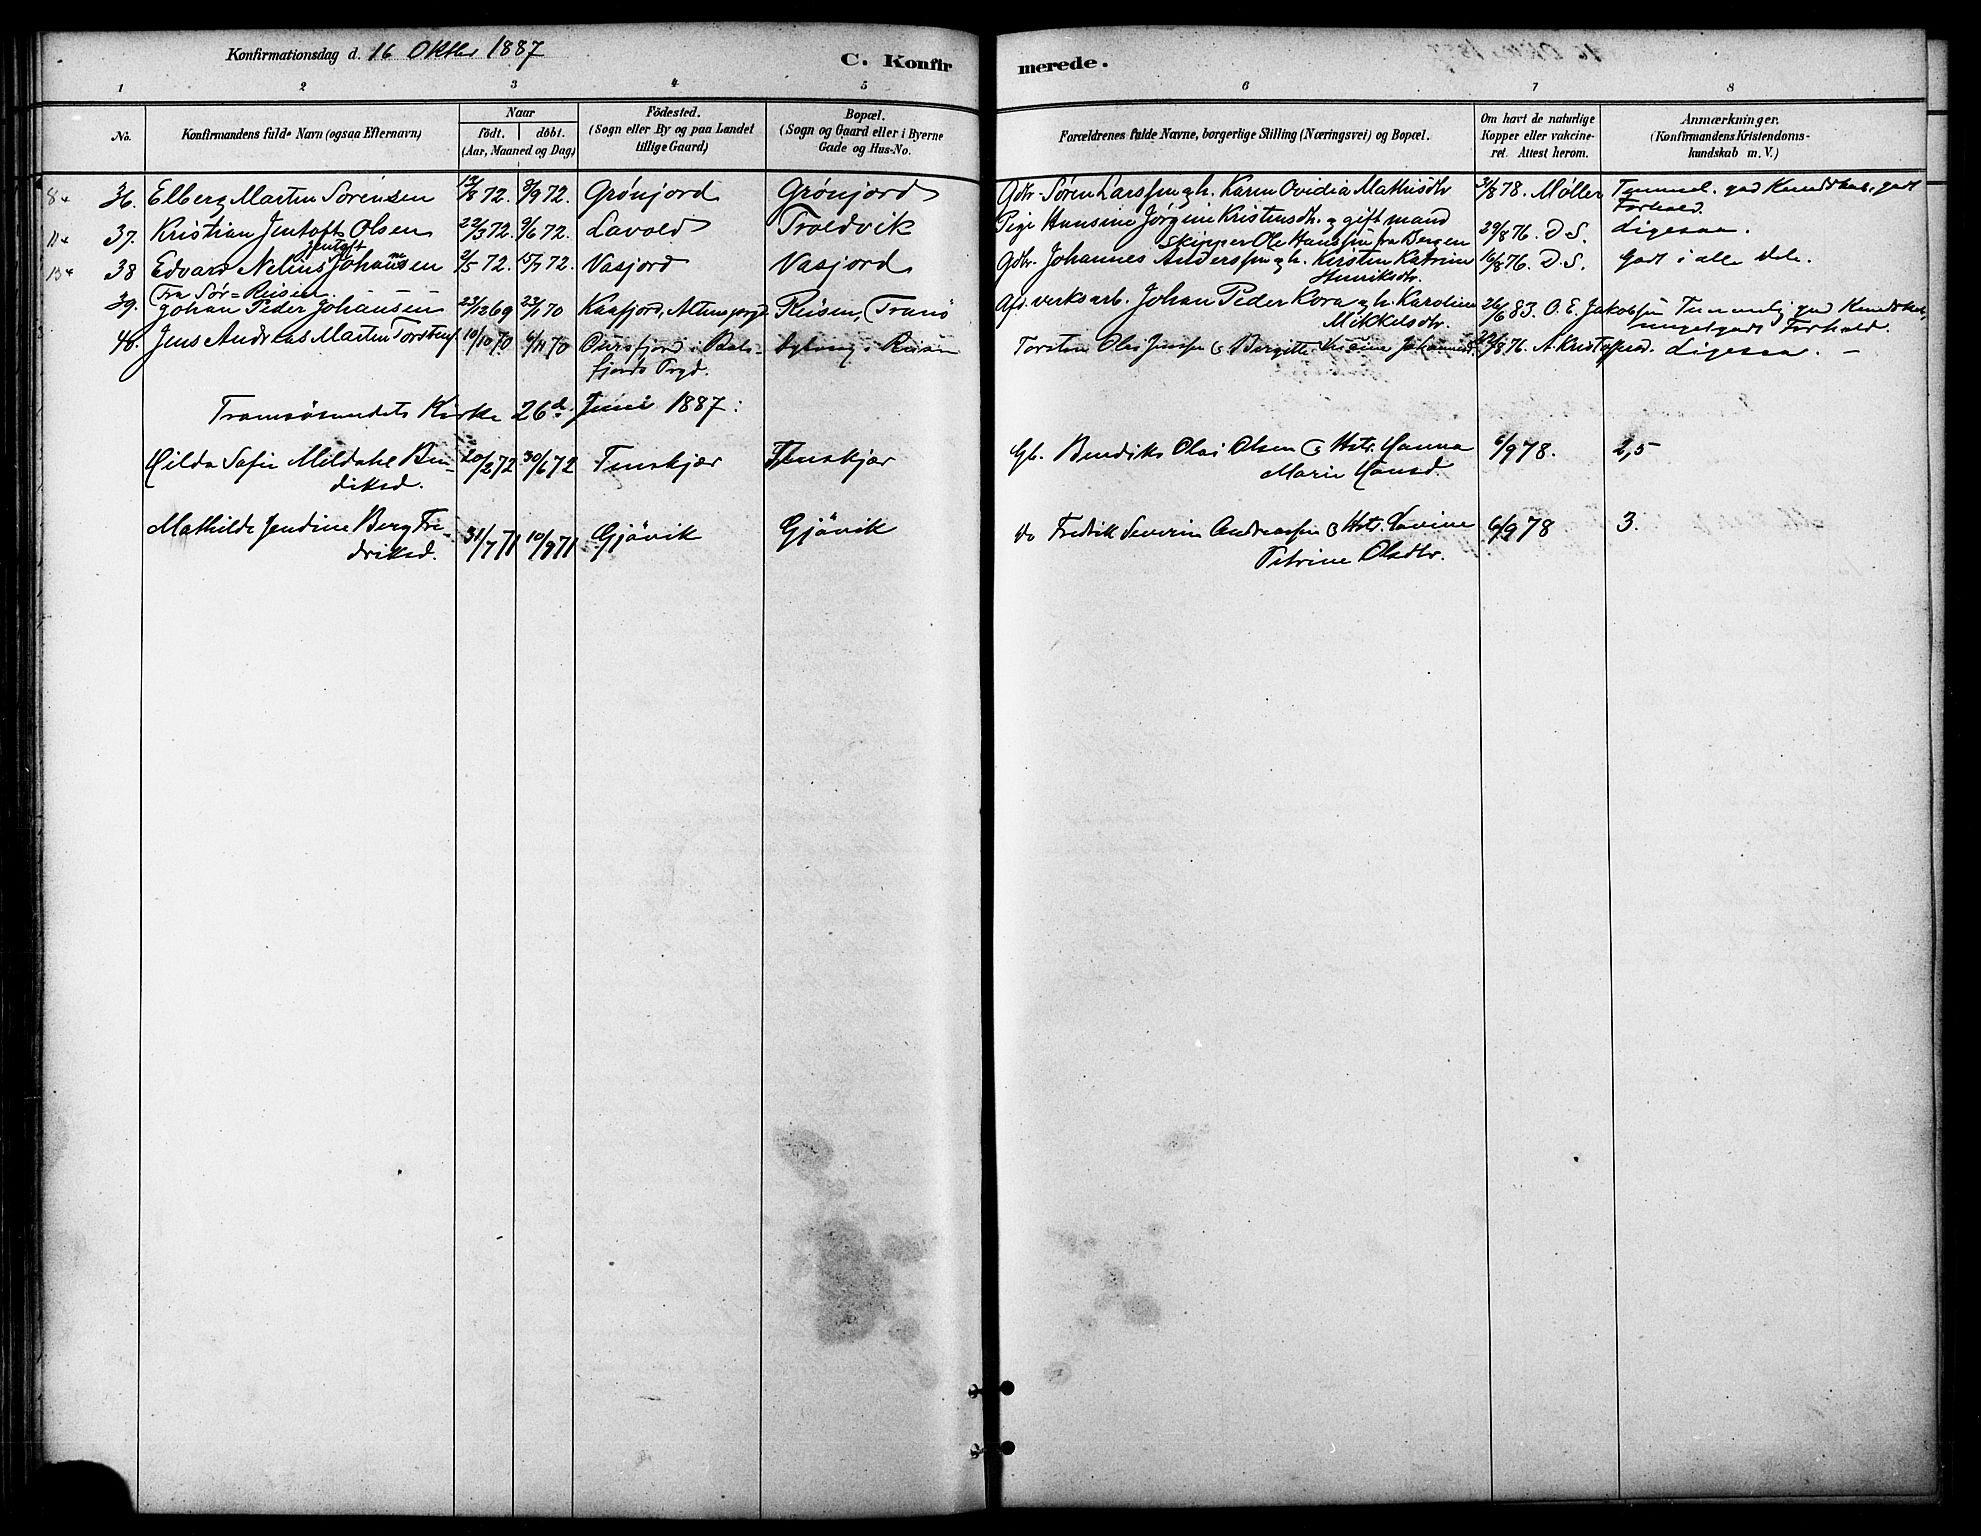 Konfirmationsdag d. 16 Oktbr 1887
C. Konfir merede.
1 2 3 4 5 6 7 8
No.
Konfirmandens fulde Navn (ogsaa Efternavn)
Naar
födt. döbt.
(Aar, Maaned og Dag)
Födested.
(Sogn eller By og paa Landet
tillige Gaard)
Bopæl.
(Sogn og Gaard eller i Byerne
Gade og Hus-No.
Forældrenes fulde Navne, borgerlige Stilling (Næringsvei) og Bopæl.
Om havt de naturlige
Kopper eller vakcine-
ret. Attest herom.
Anmærkninger.
(Konfirmandens Kristendoms-
kundskab m. V.)
36. Elberg Martin Sørensen 13/8 72. 8/9 72. Grønjord Grønjord Gdbr. Søren Larssen og h. Karen Ovidia Mathisdtr 3/8 78. Møller Temmel. god Kundskab, godt
Forhold.
37. Kristian Jentoft Olsen 22/3 72. 9/6 72. Lavold Troldvik Pige Hansine Jørgine Kristensdtr. og gift mand 29/8 76. D.S. Ligesaa.
Skipper Ole Hanssen fra Bergen
38 Edvard Nelius Jentoft Johannesen 2/5 72. 15/7 72. Vasjord Vasjord Gdbr. Johannes Anderssen og h. Kirsten Katrine 16/8 76. D.S. Godt i alle dele.
Henriksdtr.
Fra Sør-Reisen
39. Johan Peder Johansen 23/12 69 23/1 70 Kaafjord, Altens prgd. Reisen, (Tranö Afs. verksarb. Johan Peder Kora og h. Karoline 26/6 83. O. E. Jakobsen Temmelig god Kundskab,
Mikkelsdtr. meget godt Forhold.
40. Jens Andreas Martin Torstens. 10/10 70 6/11 70 i Bals-
fjords Prgd. Reisen Torsten Ole Jensen & Bergitte Johannesd. 22/8 76. A. Kristoffersd. Ligesaa. —
Tromsösundets Kirke 26d. Juni 1887:
Hilda Sofie Mildahl Ben-
diksd. 20/2 72 30/6 72 Finskjær Finskjær Gb. Bendiks Olai Olsen & Hstr. Hanna
Marie Hansd. 6/9 78. 2,5
Mathilde Jendine Berg Fre-
driksd. 31/7 71 10/9 71 Gjövik Gjövik do Fredrik Severin Andreassen & Hstr. Lovine
Petrine Olsdtr. 6/9 78 3.